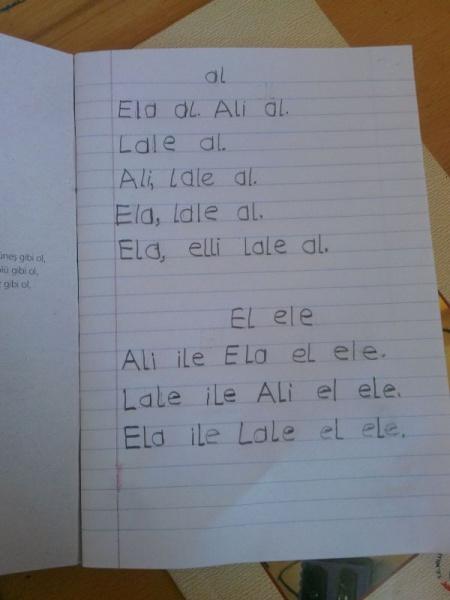 al
Ela al. Ali al.
Lale al.
Ali, lale al.
Ela, lale al.
Ela, elli lale al.
El ele
Ali ile Ela el ele.
Lale ile Ali el ele.
Ela ile Lale el ele.
gibi ol,
gibi ol,
gibi ol,